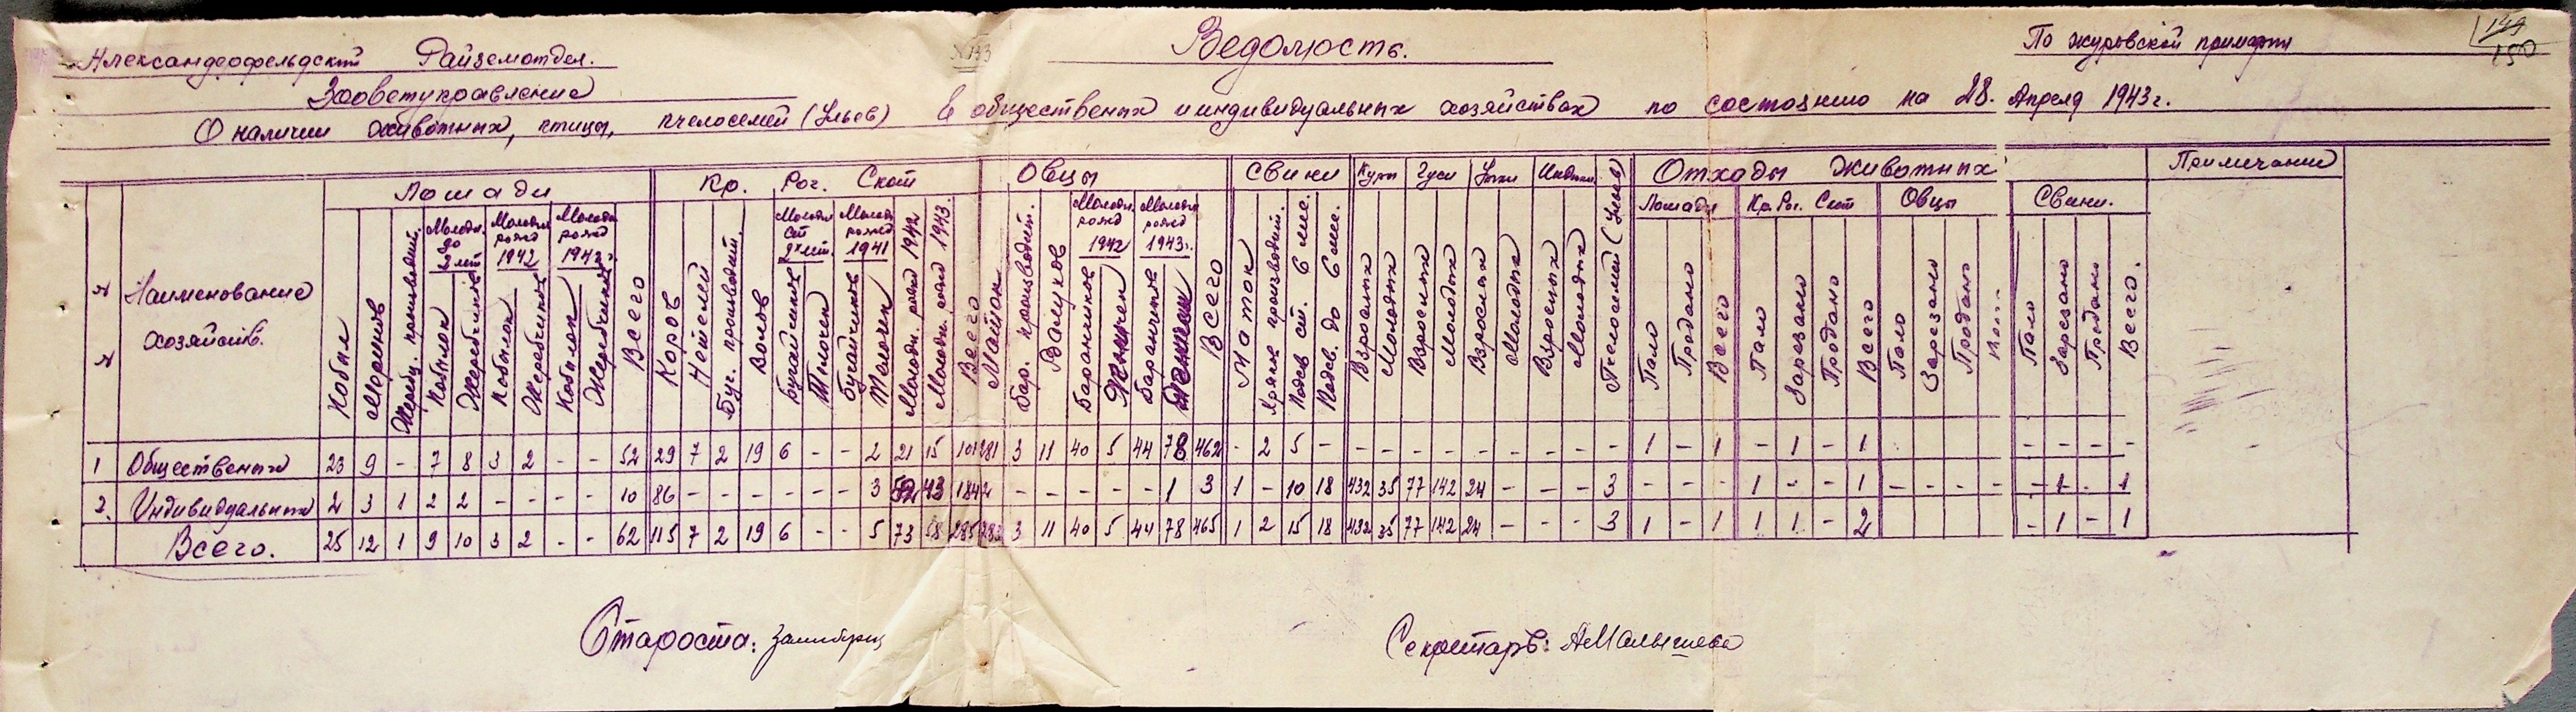 Александерфельдский Райземотдел.
Зооветуправление
№133
Ведомость.
По журовской примарии
149
150
О наличии животных, птицы, пчелосемей (Ульев) в общественных и индивидуальных хозяйствах по состоянию на 28. Апреля 1943 г.
Наименование хозяйств.
Лошади
Кр. Рог. Скот
Овцы
Свиньи
Куры
Гуси
Утки
Индюки
Пчелосемей (Ульев)
Отходы животных
Примечание
Лошади
Кр. Рог. Скот
Овцы
Свиньи.
Кобыл
Меринов
Жеребц. производит.
Молодн. до 2 лет
Кобылок
Жеребчиков
Молодн. рожд 1942
Кобылок
Жеребчиков
Молодн рожд 1943 г.
Кобылок
Жеребчиков
Всего
Коров
Нетелей
Буг. производит.
Волов
Молодн ст 2х лет.
Бугайчиков
Телочек
Молодн рожд 1941
Бугайчиков
Телочек
Молодн. рожд 1942
Молодн. рожд 1943.
Всего
Маток
Бар. производит.
Валухов
Молодн. рожд 1942
Баранчиков
Молодн рожд 1943 г.
Баранчиков
Всего
Маток
Хряков производит.
Подсв. ст. 6 мес.
Подсв. до 6 мес.
Взрослых
Молодых
Взрослых
Молодых
Взрослых
Молодых
Взрослых
Молодых
Пало
Продано
Всего
Пало
Зарезано
Продано
Всего
Пало
Зарезано
Продано
Пало
Зарезано
Продано
Всего.
1 Общественных 23 9 - 7 8 3 2 - - 52 29 7 2 19 6 - - 2 21 15 101 281 3 11 40 5 44 78 462 - 2 5 - - - - - - - - - - 1 - 1 - 1 - 1 - - - -
2. Индивидуальных 2 3 1 2 2 - - - - 10 86 - - - - - - 3 52 43 184 2 - - - - - 1 3 1 - 10 18 432 35 77 142 24 - - - 3 - - - 1 - - 1 - - - - - 1 - 1
Всего. 25 12 1 9 10 3 2 - - 62 115 7 2 19 6 - - 5 73 58 285 283 3 11 40 5 44 78 465 1 2 15 18 432 35 77 142 24 - - - 3 1 - 1 1 1 - 2 - 1 - 1
Староста:
Секретарь: АМалышева